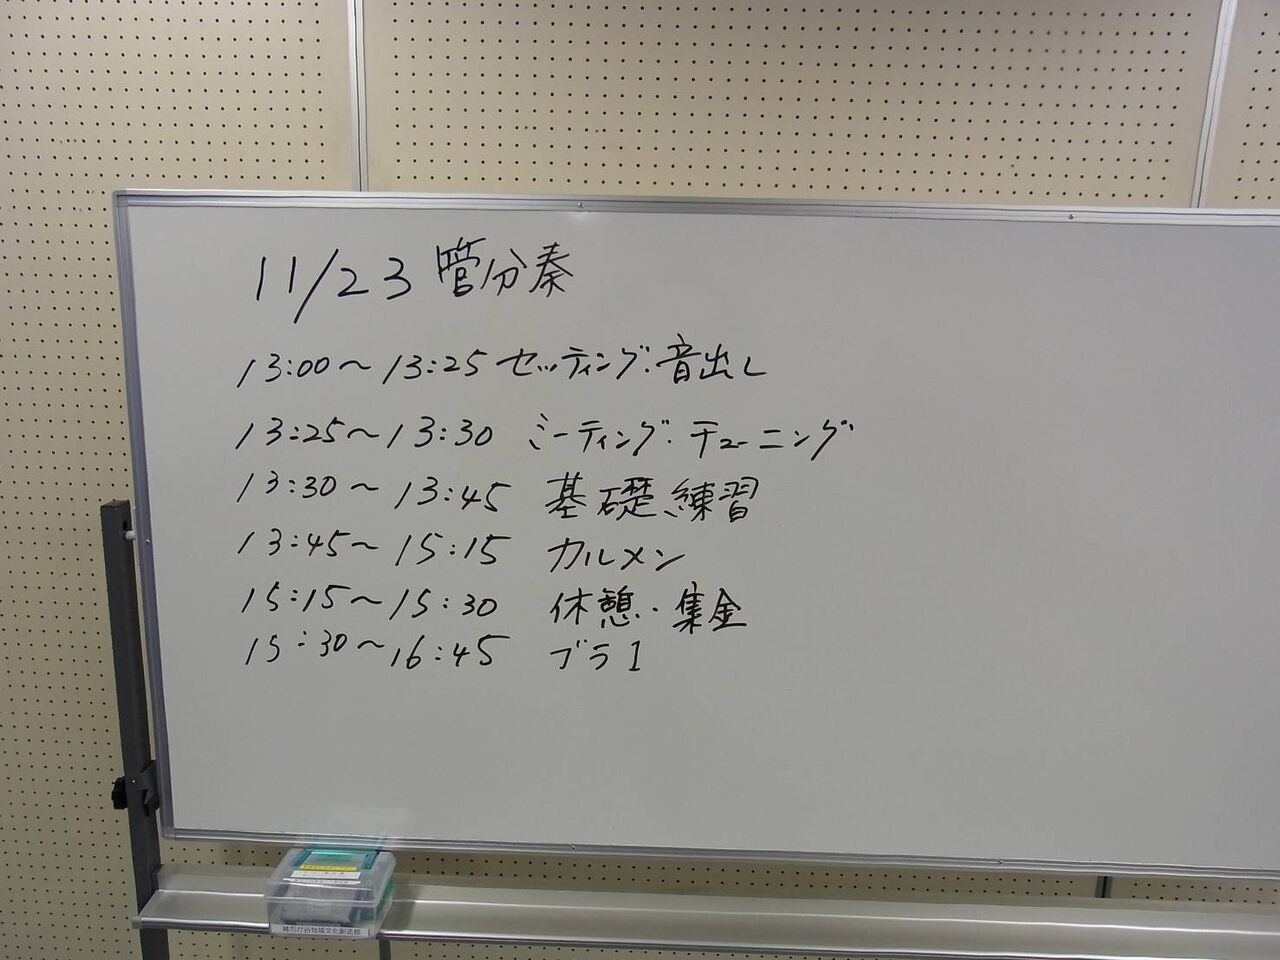 11/23 管分奏
13:00～13:25 セッティング・音出し
13:25～13:30 ミーティング・チューニング
13:30～13:45 基礎練習
13:45～15:15 カルメン
15:15～15:30 休憩・集金
15:30～16:45 ブラ1
雑司が谷地域文化創造館